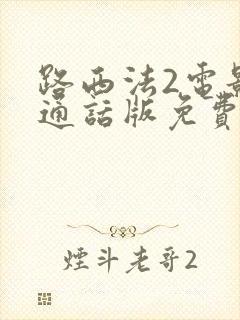 路西法2電影
通話版免費
煙斗老哥2